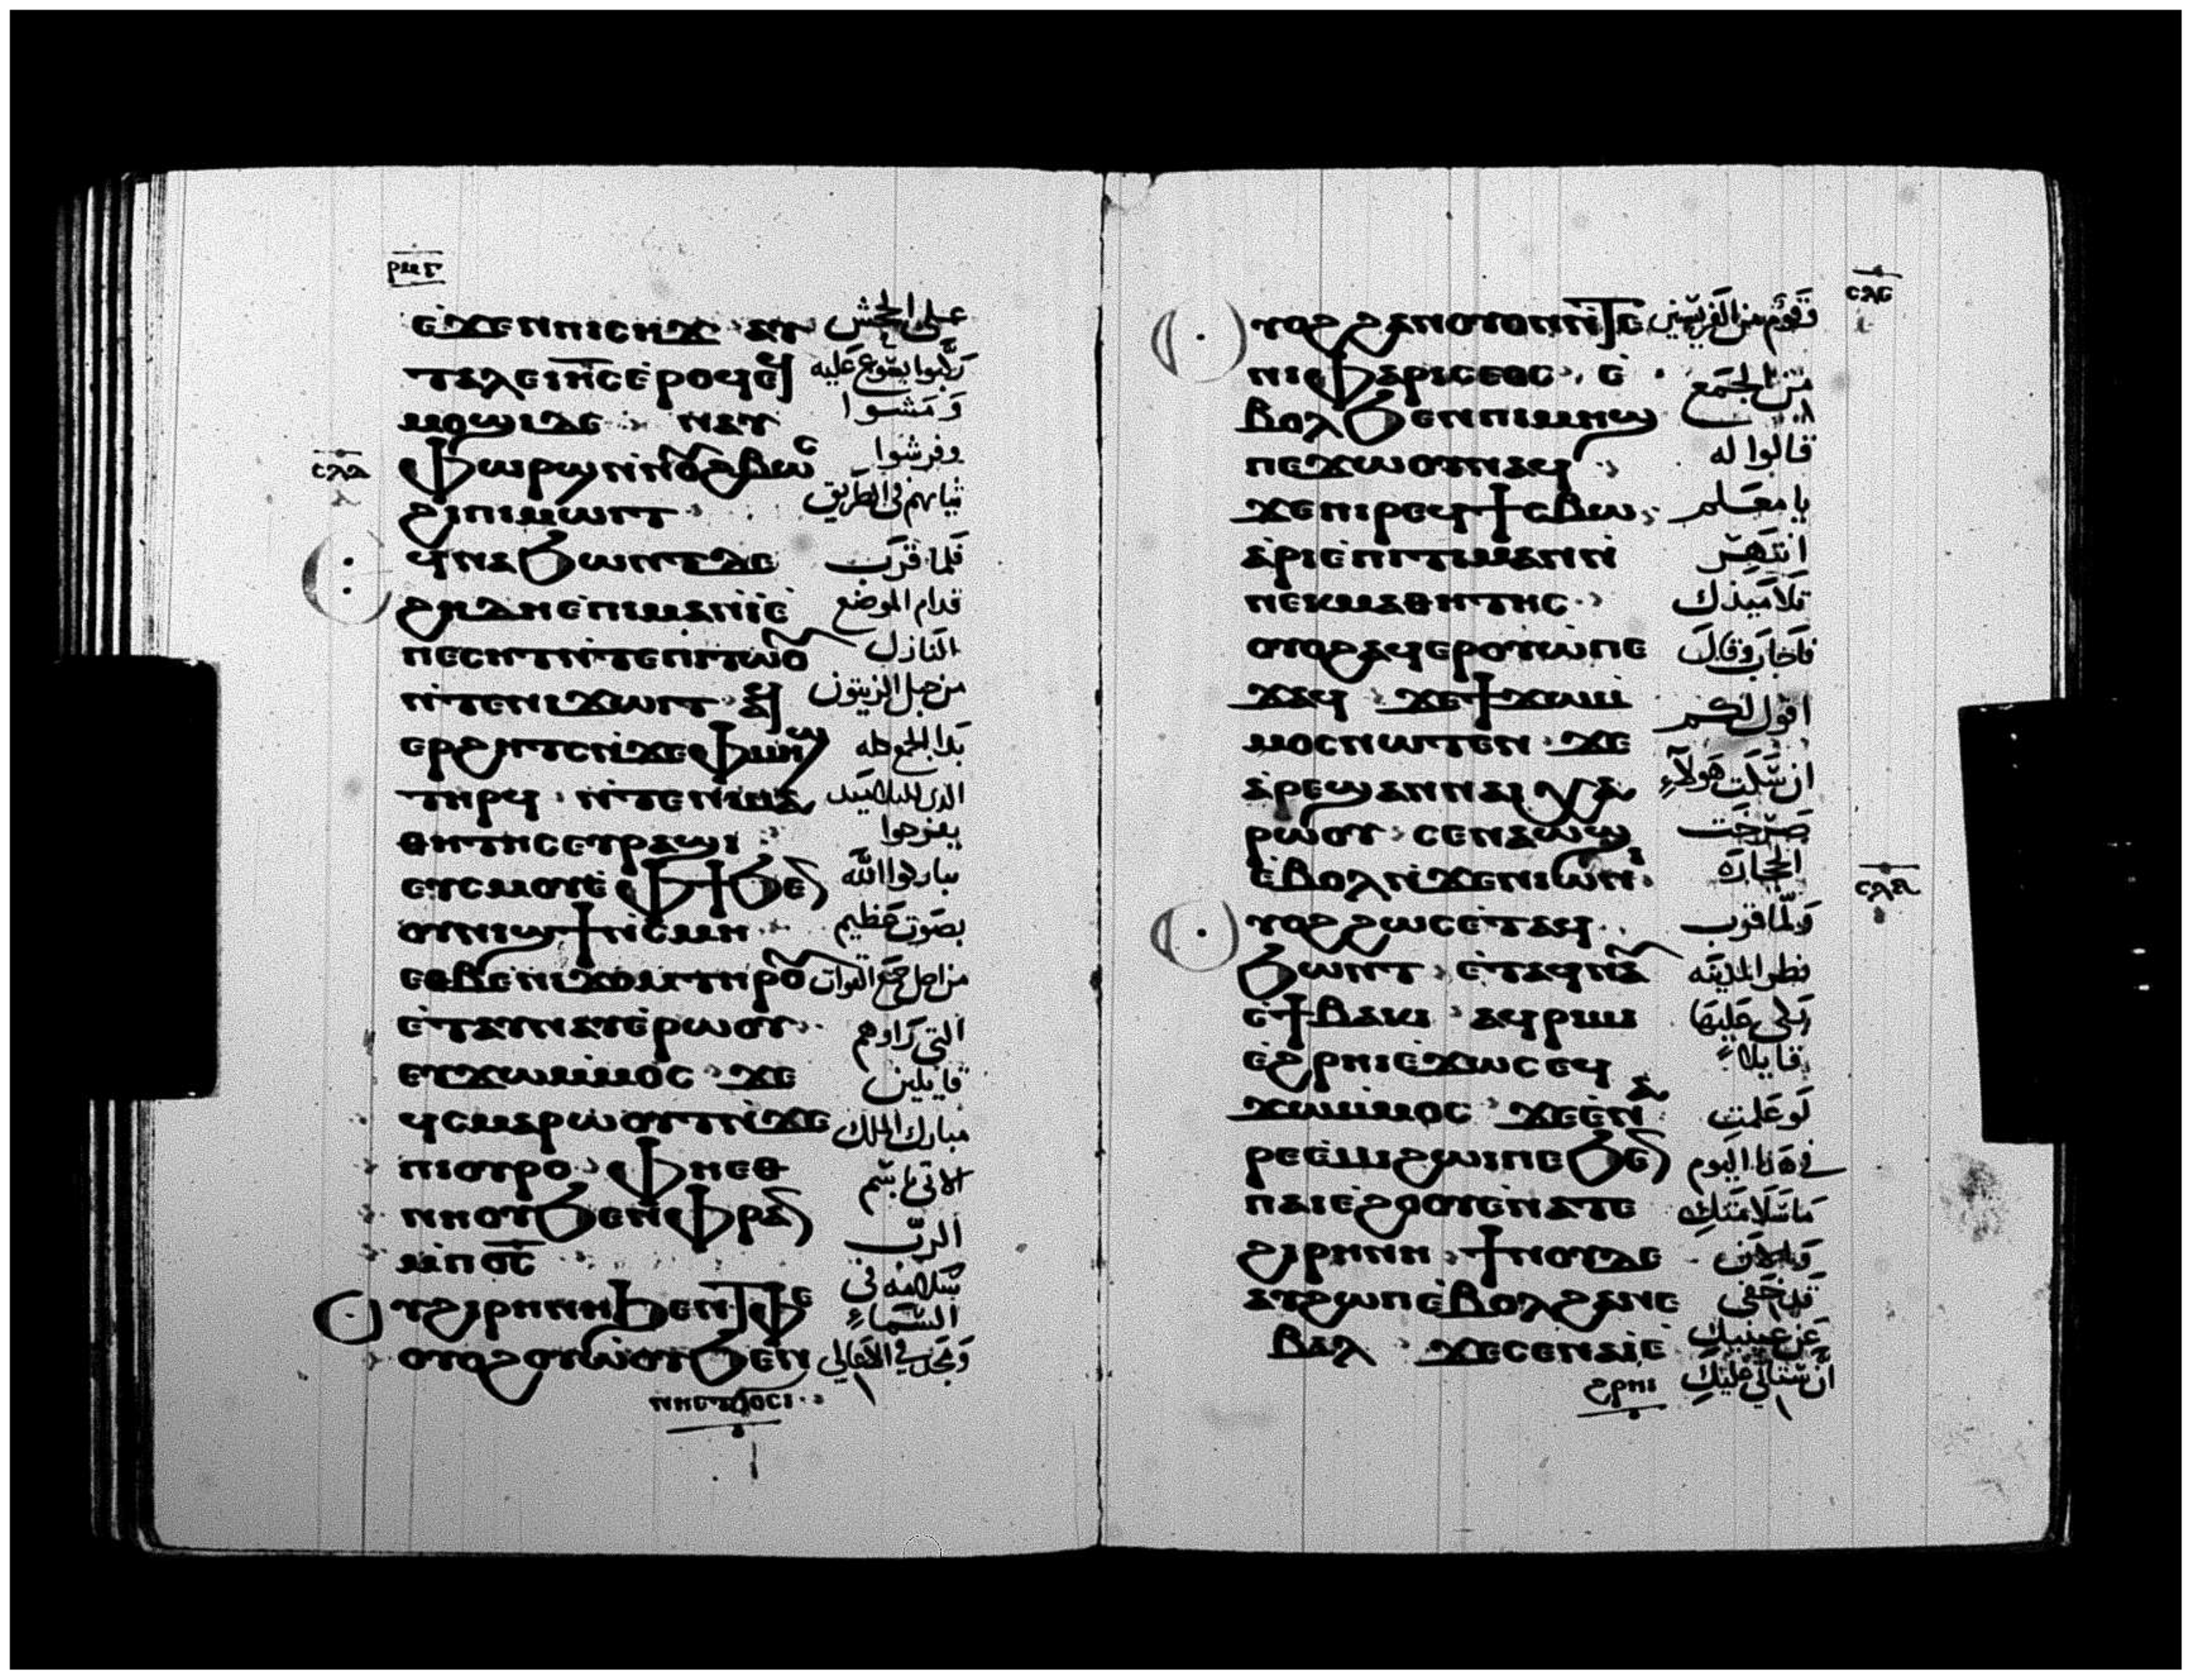 ⲣⲙⲅ
ⲉϫⲉⲛⲡⲓⲥⲏϫ ⲁⲩ على الجحش
ⲧⲁⲗⲉⲓⲏⲥⲉⲣⲟϥ ركبوا يسوع عليه
ⲙⲟϣⲓⲇⲉ ⲛⲁⲩ ومشوا
ⲫⲱⲣϣⲛⲛⲟⲩϩⲃⲱⲥ وفرشوا
ϩⲓⲡⲓⲙⲱⲓⲧ ثيابهم في الطريق
ⲥⲗⲇ
ϥⲛⲁϧⲱⲛⲧⲇⲉ فلما قرب
ϩⲏⲇⲏⲉⲡⲓⲙⲁⲛⲓⲉ قدام الموضع
ⲡⲉⲥⲏⲧⲛⲧⲉⲡⲓⲧⲱⲟⲩ النازل
ⲛⲧⲉⲛⲓϫⲱⲓⲧ ⲁϥ من جبل الزيتون
ⲉⲣϩⲏⲧⲥⲛϫⲉⲫⲙⲏϣ بدا الجمع كله
ⲧⲏⲣϥ ⲛⲧⲉⲛⲓⲙⲁ الذي للتلاميذ
ⲑⲏⲧⲏⲥⲉⲩⲣⲁϣⲓ يفرحوا
ⲉⲩⲥⲙⲟⲩⲉⲫϯϧⲉⲛ يباركوا الله
ⲟⲩⲛⲓϣϯⲛⲥⲙⲏ بصوت عظيم
ⲉⲑⲃⲉⲛⲓϫⲟⲙⲧⲏⲣⲟⲩ من اجل جميع القوات
ⲉⲧⲁⲩⲛⲁⲩⲉⲣⲱⲟⲩ التي راوهم
ⲉⲩϫⲱⲙⲙⲟⲥ ϫⲉ قايلين
ϥⲥⲙⲁⲣⲱⲟⲩⲧⲛϫⲉ مبارك الملك
ⲡⲓⲟⲩⲣⲟ ⲫⲏⲉⲑ الاتي باسم
ⲛⲏⲟⲩϧⲉⲛⲫⲣⲁⲛ الرب
ⲙⲡⲟⲥ سلامه في
ⲩϩⲓⲣⲏⲛⲏϧⲉⲛⲧⲫⲉ السماء
ⲟⲩⲟϩⲟⲩⲱⲟⲩϧⲉⲛ ومجد في الاعالي
ⲛⲏⲉⲧϭⲟⲥⲓ
ⲥⲗⲉ
ⲩⲟϩϩⲁⲛⲟⲩⲟⲛⲛⲧⲉ وقوم من الفريسيين
ⲛⲓⲫⲁⲣⲓⲥⲉⲟⲥ ⲉ من الجمع
ⲃⲟⲗϧⲉⲛⲡⲓⲙⲏϣ
ⲡⲉϫⲱⲟⲩⲛⲁϥ قالوا له
ϫⲉⲡⲓⲣⲉϥϯⲥⲃⲱ يا معلم
ⲁⲣⲓⲉⲡⲓⲧⲓⲙⲁⲛⲛ انتهر
ⲛⲉⲕⲙⲁⲑⲏⲧⲏⲥ تلاميذك
ⲟⲩⲟϩⲁϥⲉⲣⲟⲩⲱⲡⲉ فاجاب وقال
ϫⲁϥ ϫⲉϯϫⲱⲙ اقول لكم
ⲙⲟⲥⲛⲱⲧⲉⲛ ϫⲉ
ⲁⲣⲉϣⲁⲛⲛⲁⲓⲭⲁ ان سكت هولاء
ⲣⲱⲟⲩ ⲥⲉⲛⲁⲱϣ صرخت
ⲉⲃⲟⲗⲛϫⲉⲛⲓⲱⲛⲓ الحجاره
ⲥⲗⲋ
ⲩⲟϩϩⲱⲥⲉⲧⲁϥ ولما قرب
ϧⲱⲛⲧ ⲉⲧⲁϥⲛⲁⲩ نظر المدينه
ⲉϯⲃⲁⲕⲓ ⲁϥⲣⲓⲙⲓ بكى عليها
ⲉϩⲣⲏⲓⲉϫⲱⲥⲉϥ قايلا
ϫⲱⲙⲙⲟⲥ ϫⲉⲉⲛⲁ لو علمت
ⲣⲉⲉⲙⲓϩⲱⲓⲡⲉϧⲉⲛ في هذا اليوم
ⲡⲁⲓⲉϩⲟⲟⲩⲉⲛⲁⲧⲉ ما سلامتك
ϩⲓⲣⲏⲛⲏ ϯⲛⲟⲩⲇⲉ والان
ⲁⲩϩⲱⲡⲉⲃⲟⲗϩⲁⲛⲉ قد اخفى
ⲃⲁⲗ ϫⲉⲥⲉⲛⲁⲓⲉ عن عينيك
ϩⲣⲏⲓ ان ستاتي عليك